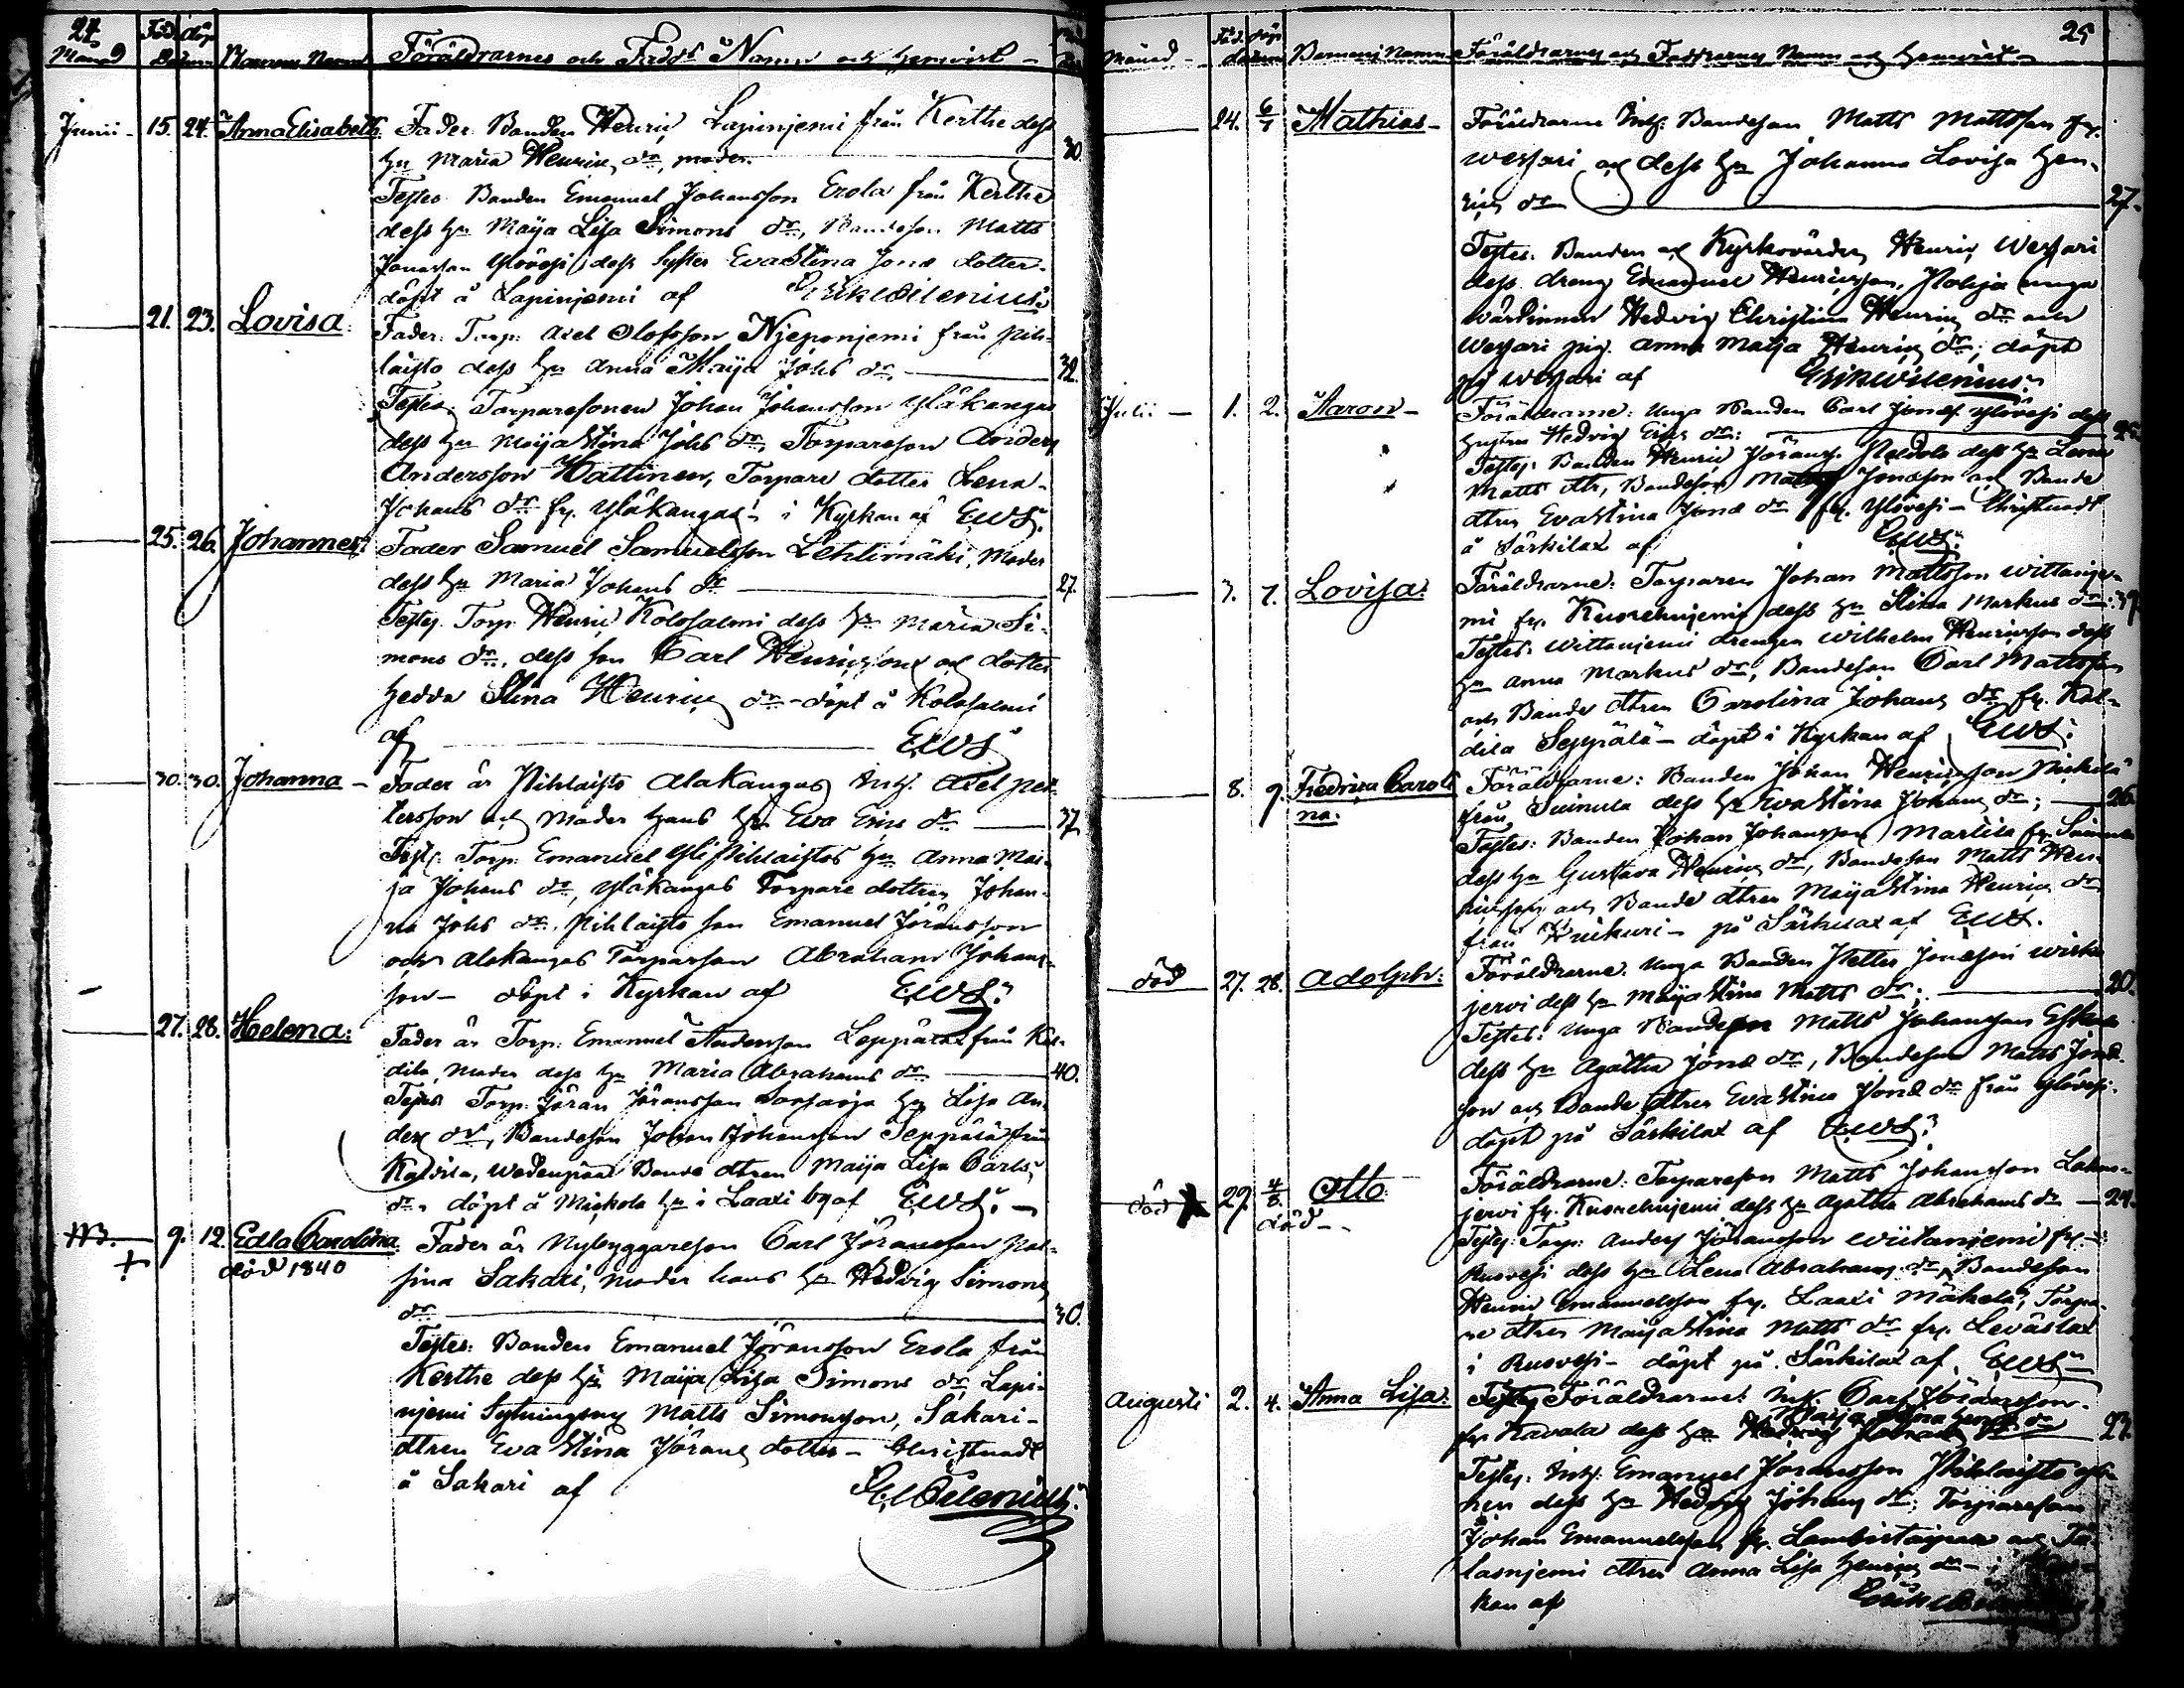 24
Månad Föd. döp. Barnens Namn Föräldrarnes och Fadd. Namn och hemvist
Junii 15. 24. Anna Elisabeth. Fader Bonden Henric Lapinjemi från Kerthe dess
hu Maria Henrics dr, moder. 30.
Testes Bonden Emanuel Johansson Erola från Kerthe
dess hu Maija Lisa Simons dr, Bondeson Matts
Jonasson Ylövesi, dess Syster Eva Stina Jonæ dotter.
döpt å Lapinjemi af Erik Wilenius.
21. 23. Lovisa. Fader: Torp. Axel Olofsson Njeponjemi från Pih-
laisto dess hu Anna Maija Johs dr. 32.
Testes. Torparesonen Johan Johansson Yläkangas
dess hu Maija Stina Johs dr, Torpareson Anders
Andersson Hattinen, Torpare dotter Lena
Johans dr fr. Yläkangas i Kyrkan af EWS.
25. 26. Johannes. Fader Samuel Samuelsson Lehtimäki, Moder
dess hu Maria Johans dr 27.
Testes. Torp. Henric Kolosalmi dess hu Maria Si-
mons dr, dess son Carl Henricsson och dotter
Hedda Stina Henrics dr - döpt å Kolosalmi
af EWS
30. 30. Johanna - Fader är Pihlaisto Alakangas Inh. Axel Pet-
tersson och Moder hans hu Eva Erics dr 37.
Test. Torp. Emanuel Yli Pihlaistos hu Anna Mai-
ja Johans dr, Yläkangas Torpare dottren Johan-
na Johs dr. Pihlaisto son Emanuel Jöransson
och Alakangas Torparson Abraham Johans-
son - döpt i Kyrkan af EWS.
27. 28. Helena: Fader är Torp. Emanuel Andersson Leppäxxx från Kal-
dila, Moder dess hu Maria Abrahams dr 40.
Testes Torp. Jöran Jöransson hu Lisa An-
ders dr, Bondeson Johan Johansson Seppälä från
Kaldila, Wedenpää Bonde dtren Maija Lisa Carls
dr. döpt å Mickola hu i Laaxi by af EWS. -
9. 12. Edla Carolina. Fader är Nybyggareson Carl Jöransson Pal-
död 1840 sina Sakari, moder hans hu Hedvig Simons
dr 30.
Testes: Bonden Emanuel Jöransson Erola från
Kerthe dess hu Maija Lisa Simons dr Lapi-
njemi Sytningsm. Matts Simonsson, Sakari-
dtren Eva Stina Jörans dotter - Christnadt
å Sakari af E Wilenius.
25
Månad Föd. döp. Barnens Namn Föräldrarnes och Faddrarnes Namn och hemvist
24. 6/7 Mathias - Föräldrarne Inh. Bondeson Matts Mattsson fr.
Wessari och dess hu Johanna Lovisa Hen-
rics dr 27.
Testes. Bonden och Kyrkovärden Henric Wessari
dess dreng Emanuel Henricsson, Pohja unga
Wärdinnan Hedvig Christina Henrics dr och
Wessari pig. Anna Maija Henrics dr; döpt
på Wessari af Erik Wilenius.
Julii 1. 2. Aaron - Föräldrarne: Unga Bonden Carl Jonæs. Ylövesi dess
hustru Hedvig Erics dr: 25.
Testes. Bonden Henric Jörans. Peldola dess hu Lena
Matts dtr, Bondeson Matts Jonæson och Bonde
dtren Eva Stina Jonæ dr fr. Ylövesi - Christnadt
å Särkilax af EWS.
3. 7. Lovisa: Föräldrarne: Torparen Johan Mattsson Wittanje-
mi fr. Kuorehnjemi dess hu Stina Markus dr. 39.
Testes. Wittanjemi drengen Wilhelm Henricsson dess
hu Anna Markus dr, Bondeson Carl Mattsson
och Bonde dtren Carolina Johans dr fr. Kal-
dila Seppälä - döpt i Kyrkan af EWS.
8. 9. Fredrica Caroli Föräldrarne: Bonden Johan Henricsson Mickilä
na. från Suinula dess hu Eva Stina Johans dr; 26.
Testes: Bonden Johan Johansson Marttila fr. Suinula
dess hu Gustava Henrics dr, Bondeson Matts Hen-
ricsson och Bonde dtren Maija Stina Henrics dr
från - på Särkilax af EWS.
död 27. 28. Adolph: Föräldrarne. Unga Bonden Petter Jonæson Wirka
jervi dess hu Maija Stina Matts dr; 20.
Testes: Unga Bonden Matts Johansson
dess hu Agatha Jonæ dr, Bondeson Matts Jonæ-
son och Bonde dtren Eva Stina Jonæ dr från Ylövesi
döpt på Särkilax af EWS.
död 29. 4/8. Otto. Föräldrarne: Torpareson Matts Johansson Lahna-
död - jervi fr. Kuorehnjemi dess hu Agatha Abrahams dr - 24.
Testes: Torp. Anders Jöransson Wiitanjemi fr.
Ruovesi dess hu Lena Abrahams dr, Bondeson
Henric Emanuelsson fr. Laaxi Mäkelä, Torpa-
re dtren Maija Stina Matts dr fr. Leväslax
i Ruovesi - döpt på Särkilax af EWS
Augusti 2. 4. Anna Lisa: Föräldrarne: Inh. Carl Jöransson.
Maija Stina Henr. dr
fr. Kavala dess hu 27.
Testes: Inh. Emanuel Jöransson Pihlaisto
dess hu Hedvig Johans dr; Torpareson
Johan Emanuelsson fr. och
lasnjemi dtren Anna Lisa Henrics dr - i Kyr-
kan af Erik Wilenius